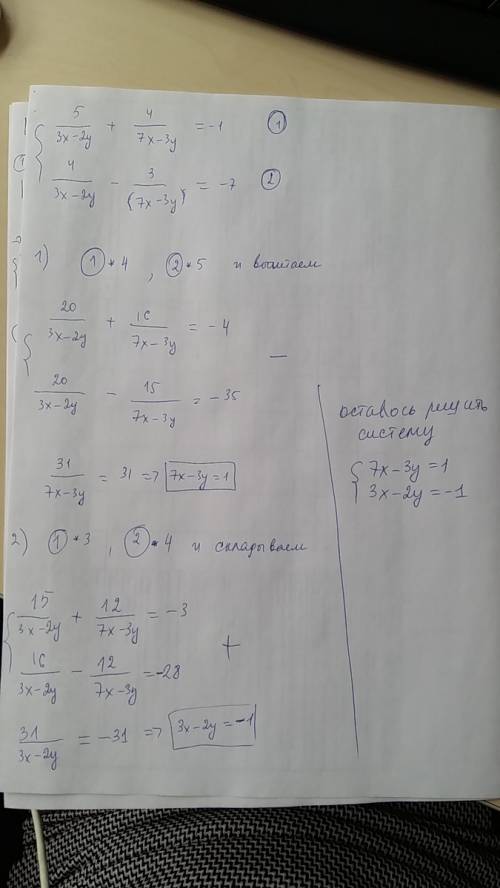 { 5/(3x-2y) + 4/(7x-3y) = -1 ①
4/(3x-2y) - 3/(7x-3y) = -7 ②
1) ①*4 , ②*5 и вычитаем
{ 20/(3x-2y) + 16/(7x-3y) = -4
20/(3x-2y) - 15/(7x-3y) = -35
—
31/(7x-3y) = 31 => 7x-3y=1
2) ①*3 , ②*4 и складываем
{ 15/(3x-2y) + 12/(7x-3y) = -3
16/(3x-2y) - 12/(7x-3y) = -28
+
31/(3x-2y) = -31 => 3x-2y=-1
осталось решить
систему
{ 7x-3y=1
3x-2y=-1